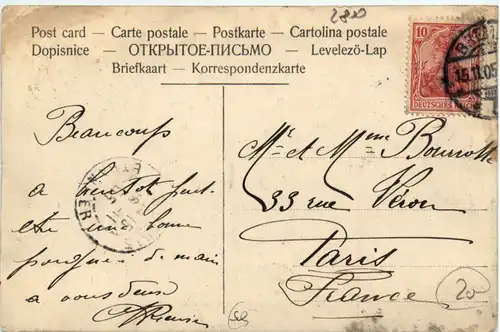 2820
Post card – Carte postale – Postkarte – Cartolina postale
Dopisnice – ОТКРЫТОЕ-ПИСЬМО – Levelező-Lap
Briefkaart – Korrespondenzkarte
10
DEUTSCHES
15.11.05
Beaucoup
a bientot peut
etre une bonne
poignée de main
a vous deux
Mr et Mme
33 rue Véron
Paris
France
20